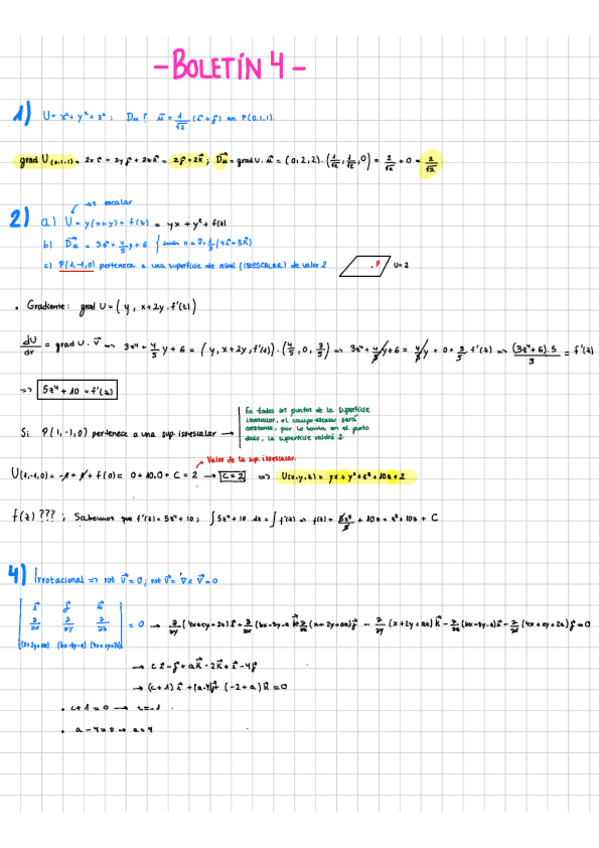 - BOLETÍN 4 -
1) U = x² + y² + z² ; Du ? u⃗ = 1/√2 (i⃗ + j⃗) en P(0,1,1).
grad U (0,1,1) = 2x i⃗ + 2y j⃗ + 2z k⃗ = 2j⃗ + 2k⃗ ; Du⃗ = grad U · u⃗ = (0,2,2) · (1/√2, 1/√2, 0) = 2/√2 + 0 = 2/√2
→ es escalar
2) a) U = y(x+y) + f(z) = yx + y² + f(z)
b) Du⃗ = 3z⁴ + 4/5 y + 6
c) P(1,-1,0) pertenece a una superficie de nivel (ISOESCALAR) de valor 2
. P U=2
• Gradiente: grad U = (y, x+2y, f'(z))
dU/dr = grad U · v⃗ => 3z⁴ + 4/5 y + 6 = (y, x+2y, f'(z)) · (4/5, 0, 3/5) => 3z⁴ + 4/5 y + 6 = 4/5 y + 0 + 3/5 f'(z) => (3z⁴+6)·5/3 = f'(z)
=> 5z⁴ + 10 = f'(z)
Si P(1,-1,0) pertenece a una sup. isoescalar →
En todos los puntos de la superficie
isoescalar, el campo escalar será
constante, por lo tanto, en el punto
dado, la superficie valdrá 2.
Valor de la sup. isoescalar.
U(1,-1,0) = -1 + 1 + f(0) = 0 + 10·0 + C = 2 → C = 2 => U(x,y,z) = yx + y² + z⁵ + 10z + 2
f(z) ??? ; Sabemos que f'(z) = 5z⁴ + 10 ; ∫5z⁴ + 10 · dz = ∫f'(z) => f(z) = 5z⁵/5 + 10z = z⁵ + 10z + C
4) Irrotacional => rot V⃗ = 0 ; rot V⃗ = ∇ x V⃗ = 0
i⃗ j⃗ k⃗
∂/∂x ∂/∂y ∂/∂z = 0 → ∂/∂y (4x+cy+2z) i⃗ + ∂/∂x (bx-3y-z) k⃗ + ∂/∂z (x+2y+az) j⃗ - ∂/∂y (x+2y+az) k⃗ - ∂/∂z (bx-3y-z) i⃗ - ∂/∂x (4x+cy+2z) j⃗ = 0
(x+2y+az) (bx-3y-z) (4x+cy+2z)
→ c i⃗ - j⃗ + a k⃗ - 2k⃗ + i⃗ - 4j⃗
→ (c+1) i⃗ + (a-4) j⃗ + (-2+a) k⃗ = 0
• c+1 = 0 → c = -1
• a-4 = 0 → a = 4